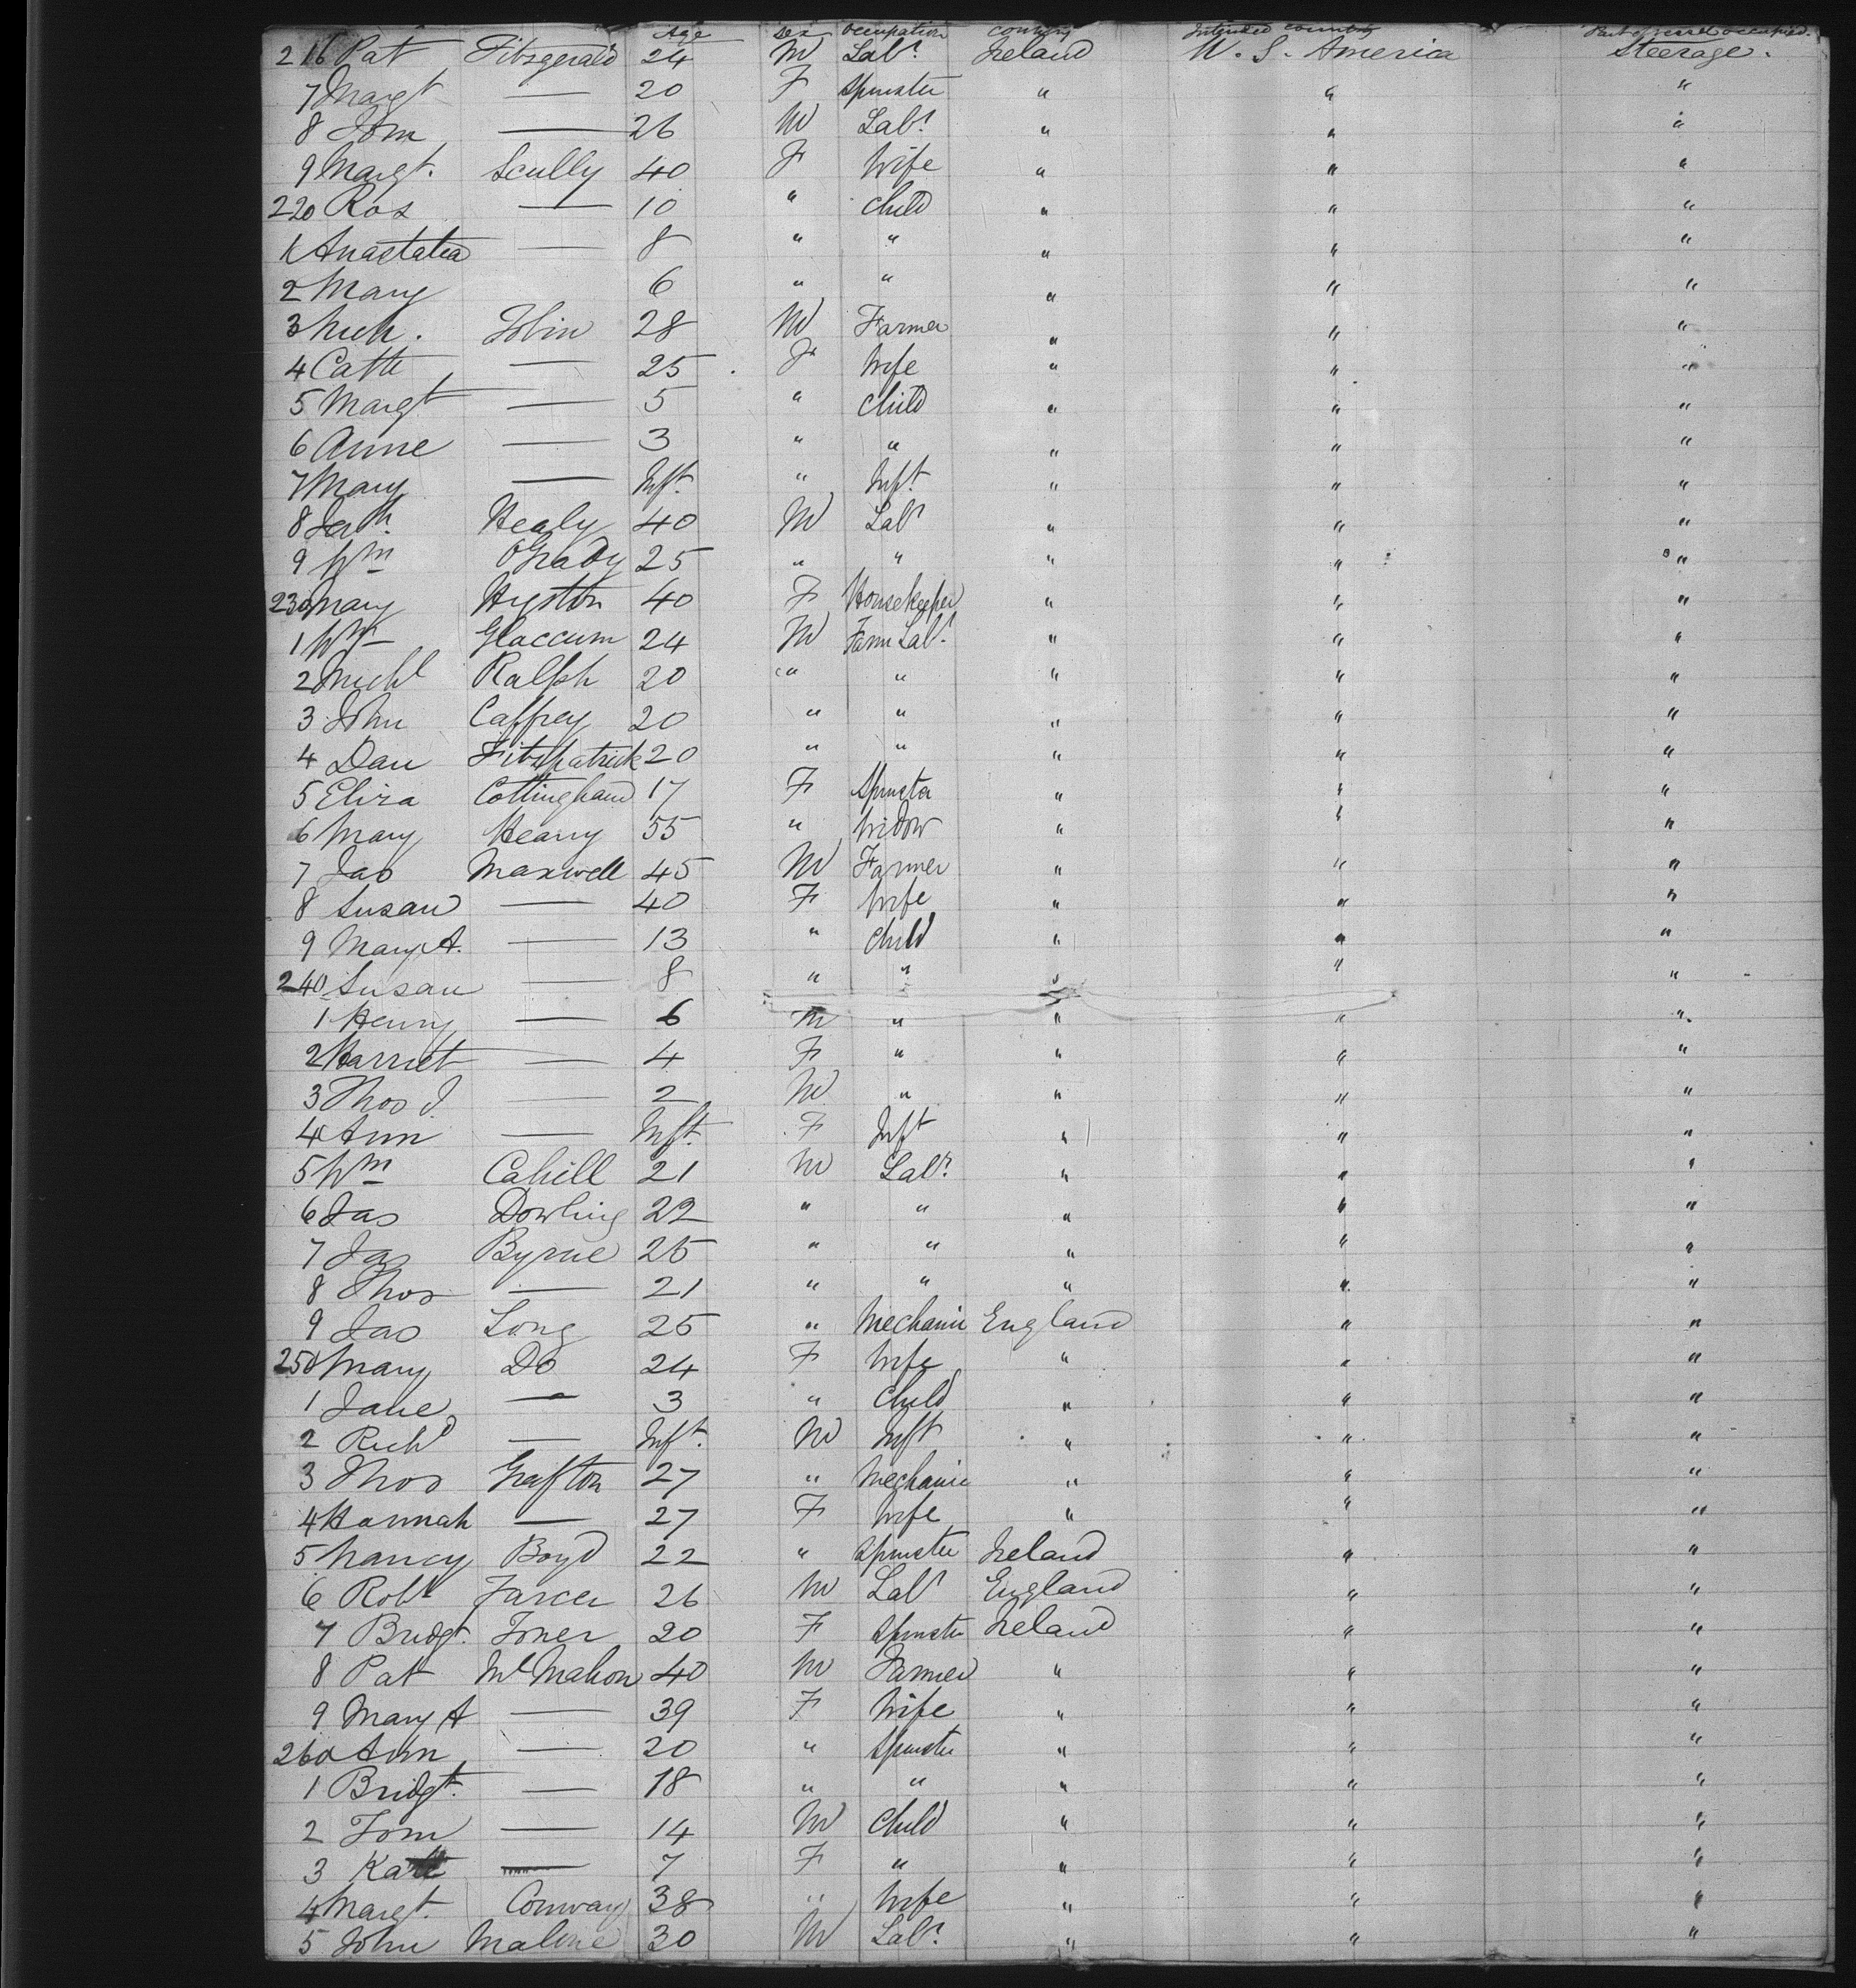 Age Sex Occupation Country Intended Country Part of vessel occupied.
216 Pat Fitzgerald 24 M Labr. Ireland U. S. America Steerage.
7 Margt — 20 F Spinster " " "
8 Tom — 26 M Labr. " " "
9 Margt. Scully 40 F Wife " " "
220 Ros — 10 " Child " " "
1 Anastatia — 8 " " " " "
2 Mary 6 " " " " "
3 Mich. Tobin 28 M Farmer " " "
4 Cath — 25 F Wife " " "
5 Margt — 5 " Child " " "
6 Anne — 3 " " " " "
7 Mary — Inft. " Inft. " " "
8 Healy 40 M Labr " " "
9 Wm OGrady 25 " " " " "
230 Mary Hyston 40 F Housekeeper " " "
1 Wm Glaccum 24 M Farm Labr. " " "
2 Michl Ralph 20 " " " " "
3 John Caffrey 20 " " " " "
4 Dan Fitzpatrick 20 " " " " "
5 Eliza Cottingham 17 F Spinster " " "
6 Mary Heany 55 " Widow " " "
7 Jas Maxwell 45 M Farmer " " "
8 Susan — 40 F Wife " " "
9 Mary A. — 13 " Child " " "
240 Susan — 8 " " " " "
1 Henry — 6 M " " " "
2 Harriet — 4 F " " " "
3 Thos J. — 2 M " " " "
4 Ann — Inft. F Inft " " "
5 Wm Cahill 21 M Labr. " " "
6 Jas Dowling 22 " " " " "
7 Jas Byrne 25 " " " " "
8 Thos — 21 " " " " "
9 Jas Long 25 " Mechanic England " "
250 Mary Do 24 F Wife " " "
1 Jane — 3 " Child " " "
2 Richd — Inft. M Inft " " "
3 Thos Grafton 27 " Mechanic " " "
4 Hannah — 27 F Wife " " "
5 Nancy Boyd 22 " Spinster Ireland " "
6 Robt 26 M Labr England " "
7 Bridgt. Toner 20 F Spinster Ireland " "
8 Pat McMahon 40 M Farmer " " "
9 Mary A — 39 F Wife " " "
260 Ann — 20 " Spinster " " "
1 Bridgt. — 18 " " " " "
2 Tom — 14 M Child " " "
3 Kate — 7 F " " " "
4 Margt. Conway 38 " Wife " " "
5 John Malone 30 M Labr. " " "